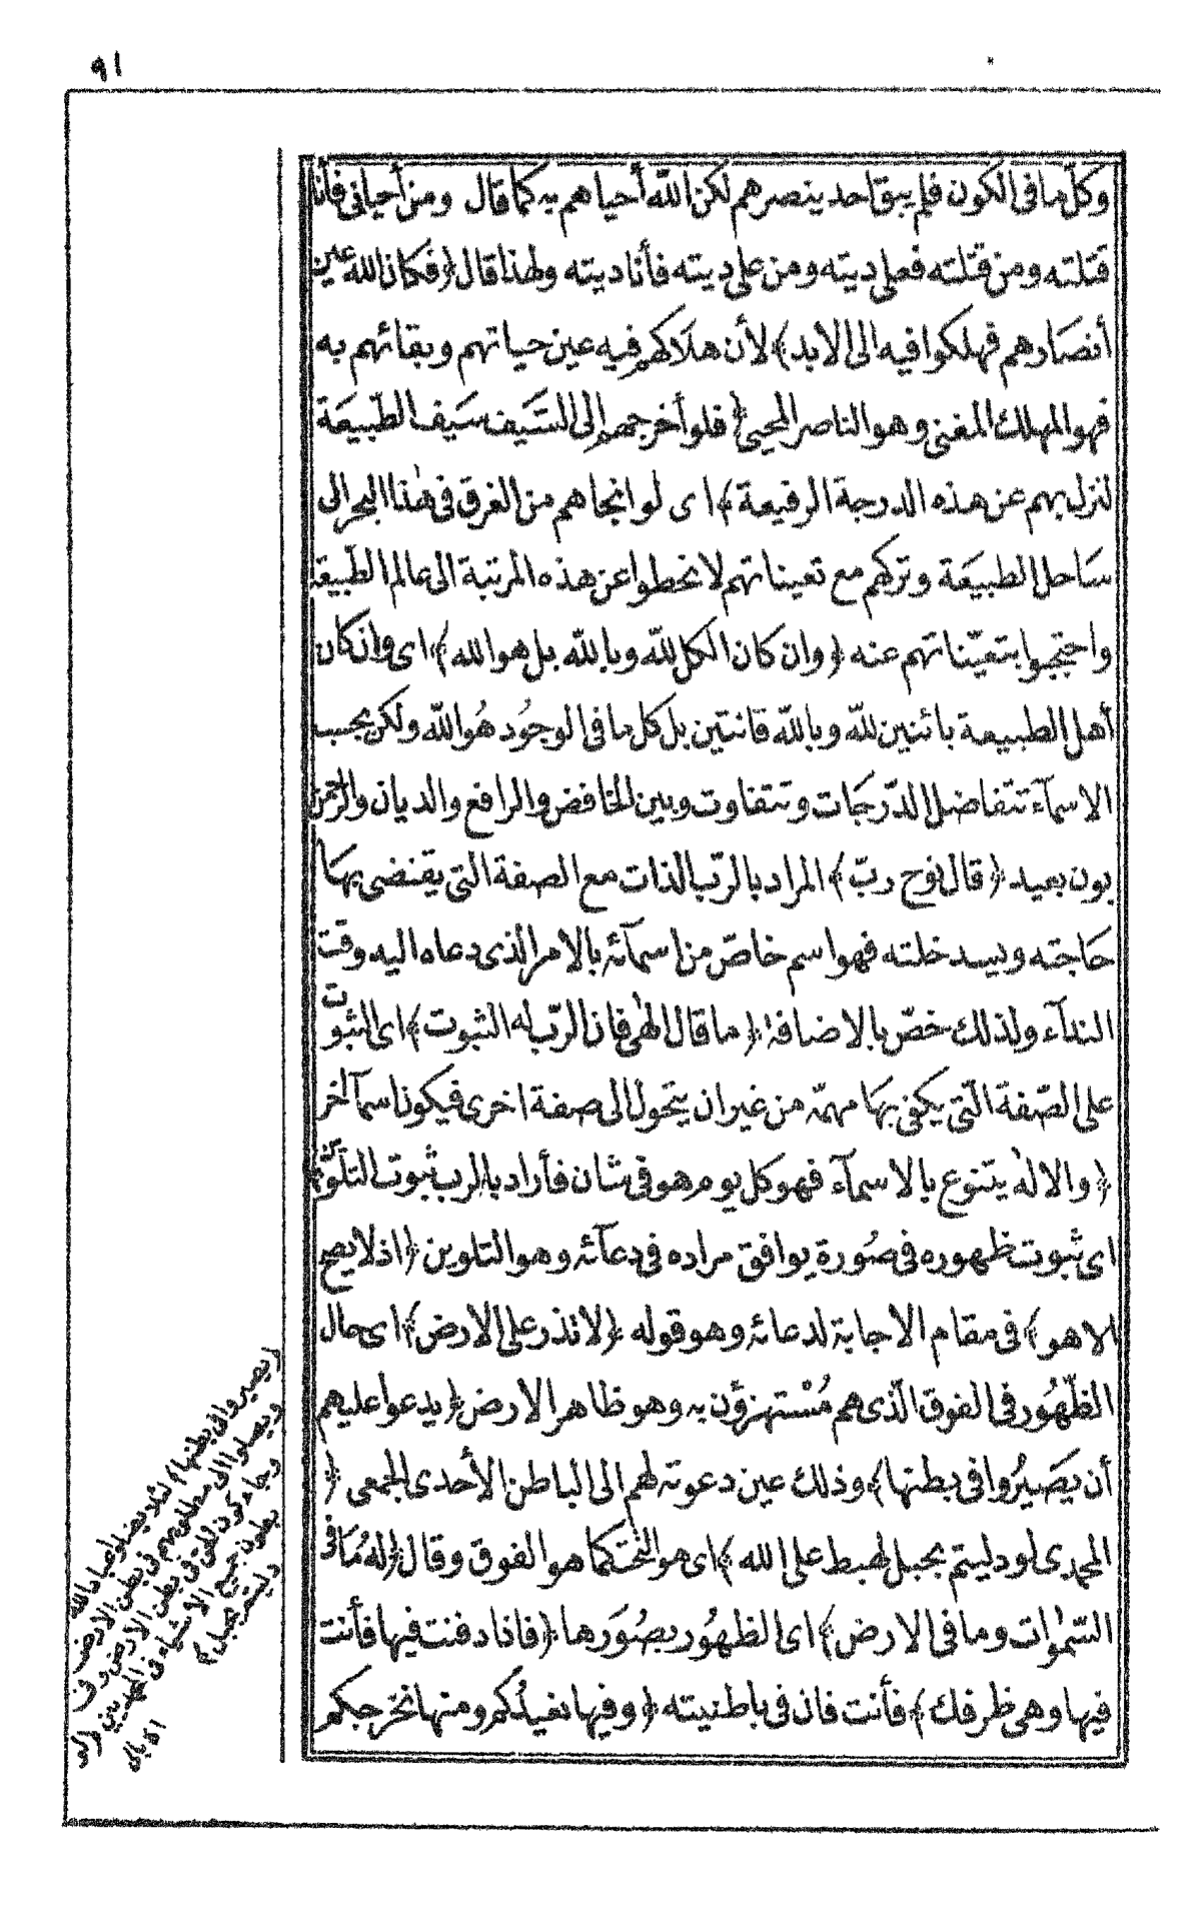 ٩١
وكلّ ما فى الكون فلم يبق احد ينصرهم لكن الله أحياهم به كما قال ومن أحيانى فأنا
قتلته ومن قتلته فعلى ديته ومن على ديته فأنا ديته ولهذا قال ﴿فكان الله عين
أنصارهم فهلكوا فيه الى الابد﴾ لأن هلاكهم فيه عين حياتهم وبقائهم به
فهو المهلك المغنى وهو الناصر المحيى ﴿فلو أخرجهم إلى السّيف سيف الطّبيعة
لنزل بهم عن هذه الدرجة الرفيعة﴾ اى لو انجاهم من الغرق فى هذا البحر الى
ساحل الطبيعة وتركهم مع تعيناتهم لانحطوا عن هذه المرتبة الى عالم الطّبيعة
واحتجبوا بتعيّناتهم عنه ﴿وان كان الكل لله وبالله بل هو الله﴾ اى وان كان
أهل الطبيعة بائنين لله وبالله قانتين بل كل ما فى الوجود هو الله ولكن بحب
الاسمآء تتفاضل الدّرجات وتتفاوت وبين الخافض والرافع والديان والرحمن
بون بعيد ﴿قال نوح ربّ﴾ المراد بالربّ الذات مع الصفة التى يقتضى بها
حاجته ويسد خلته فهو اسم خاصّ من اسمآئه بالامر الذى دعاه اليه وقت
الندآء ولذلك خصّ بالاضافة ﴿ما قال الهى فان الربّ له الثبوت﴾ اى الثبوت
على الصّفة الّتى يكفى بها مهمّه من غير ان يتحول الى صفة اخرى فيكون اسمآ آخر
﴿والاله يتنوع بالاسمآء فهو كل يوم هو فى شان فأراد بالرب ثبوت التلوّن﴾
اى ثبوت ظهوره فى صورة يوافق مراده فى دعآئه وهو التلوين ﴿اذ لا يصح
الا هو﴾ فى مقام الاجابة لدعائه وهو قوله ﴿لا تذر على الارض﴾ اى حال
الظّهور فى الفوق الّذى هم مُسْتهزؤن به وهو ظاهر الارض ﴿يدعوا عليهم
أن يصيروا فى بطنها﴾ وذلك عين دعوته لهم الى الباطن الأحدى الجمعى ﴿
المحمدى لو دليتم بحبل لهبط على الله﴾ اى هو التحت كما هو الفوق وقال ﴿له ما فى
السّموات وما فى الارض﴾ اى الظهور بصورها ﴿فاذا دفنت فيها فأنت
فيها وهى ظرفك﴾ فأنت فان فى باطنيته ﴿وفيها نعيدكم ومنها نخرجكم
(يصيروا فى بطنها) لئلا يضلوا عباد الله
ويصلوا الى مطلوبهم فى بطن الارض
وجاء كون الحق فى بطن الارض وفى
بطون جميع الاشياء فى
دليتم بحبل)